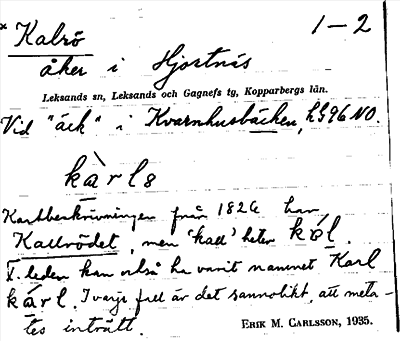 * Kalrö 1-2
åker i Hjortnäs
Leksands sn, Leksands och Gagnefs tg, Kopparbergs län.
Vid "äck" i Kvarnhusbäcken, LS96 NO.
kàrls
Kartbeskrivningen från 1826 har
Kallrödet, men 'kall' heter kól.
I. leden kan också ha varit namnet Karl
kárl. I varje fall är det sannolikt, att meta-
tes inträtt.
ERIK M. CARLSSON, 1935.